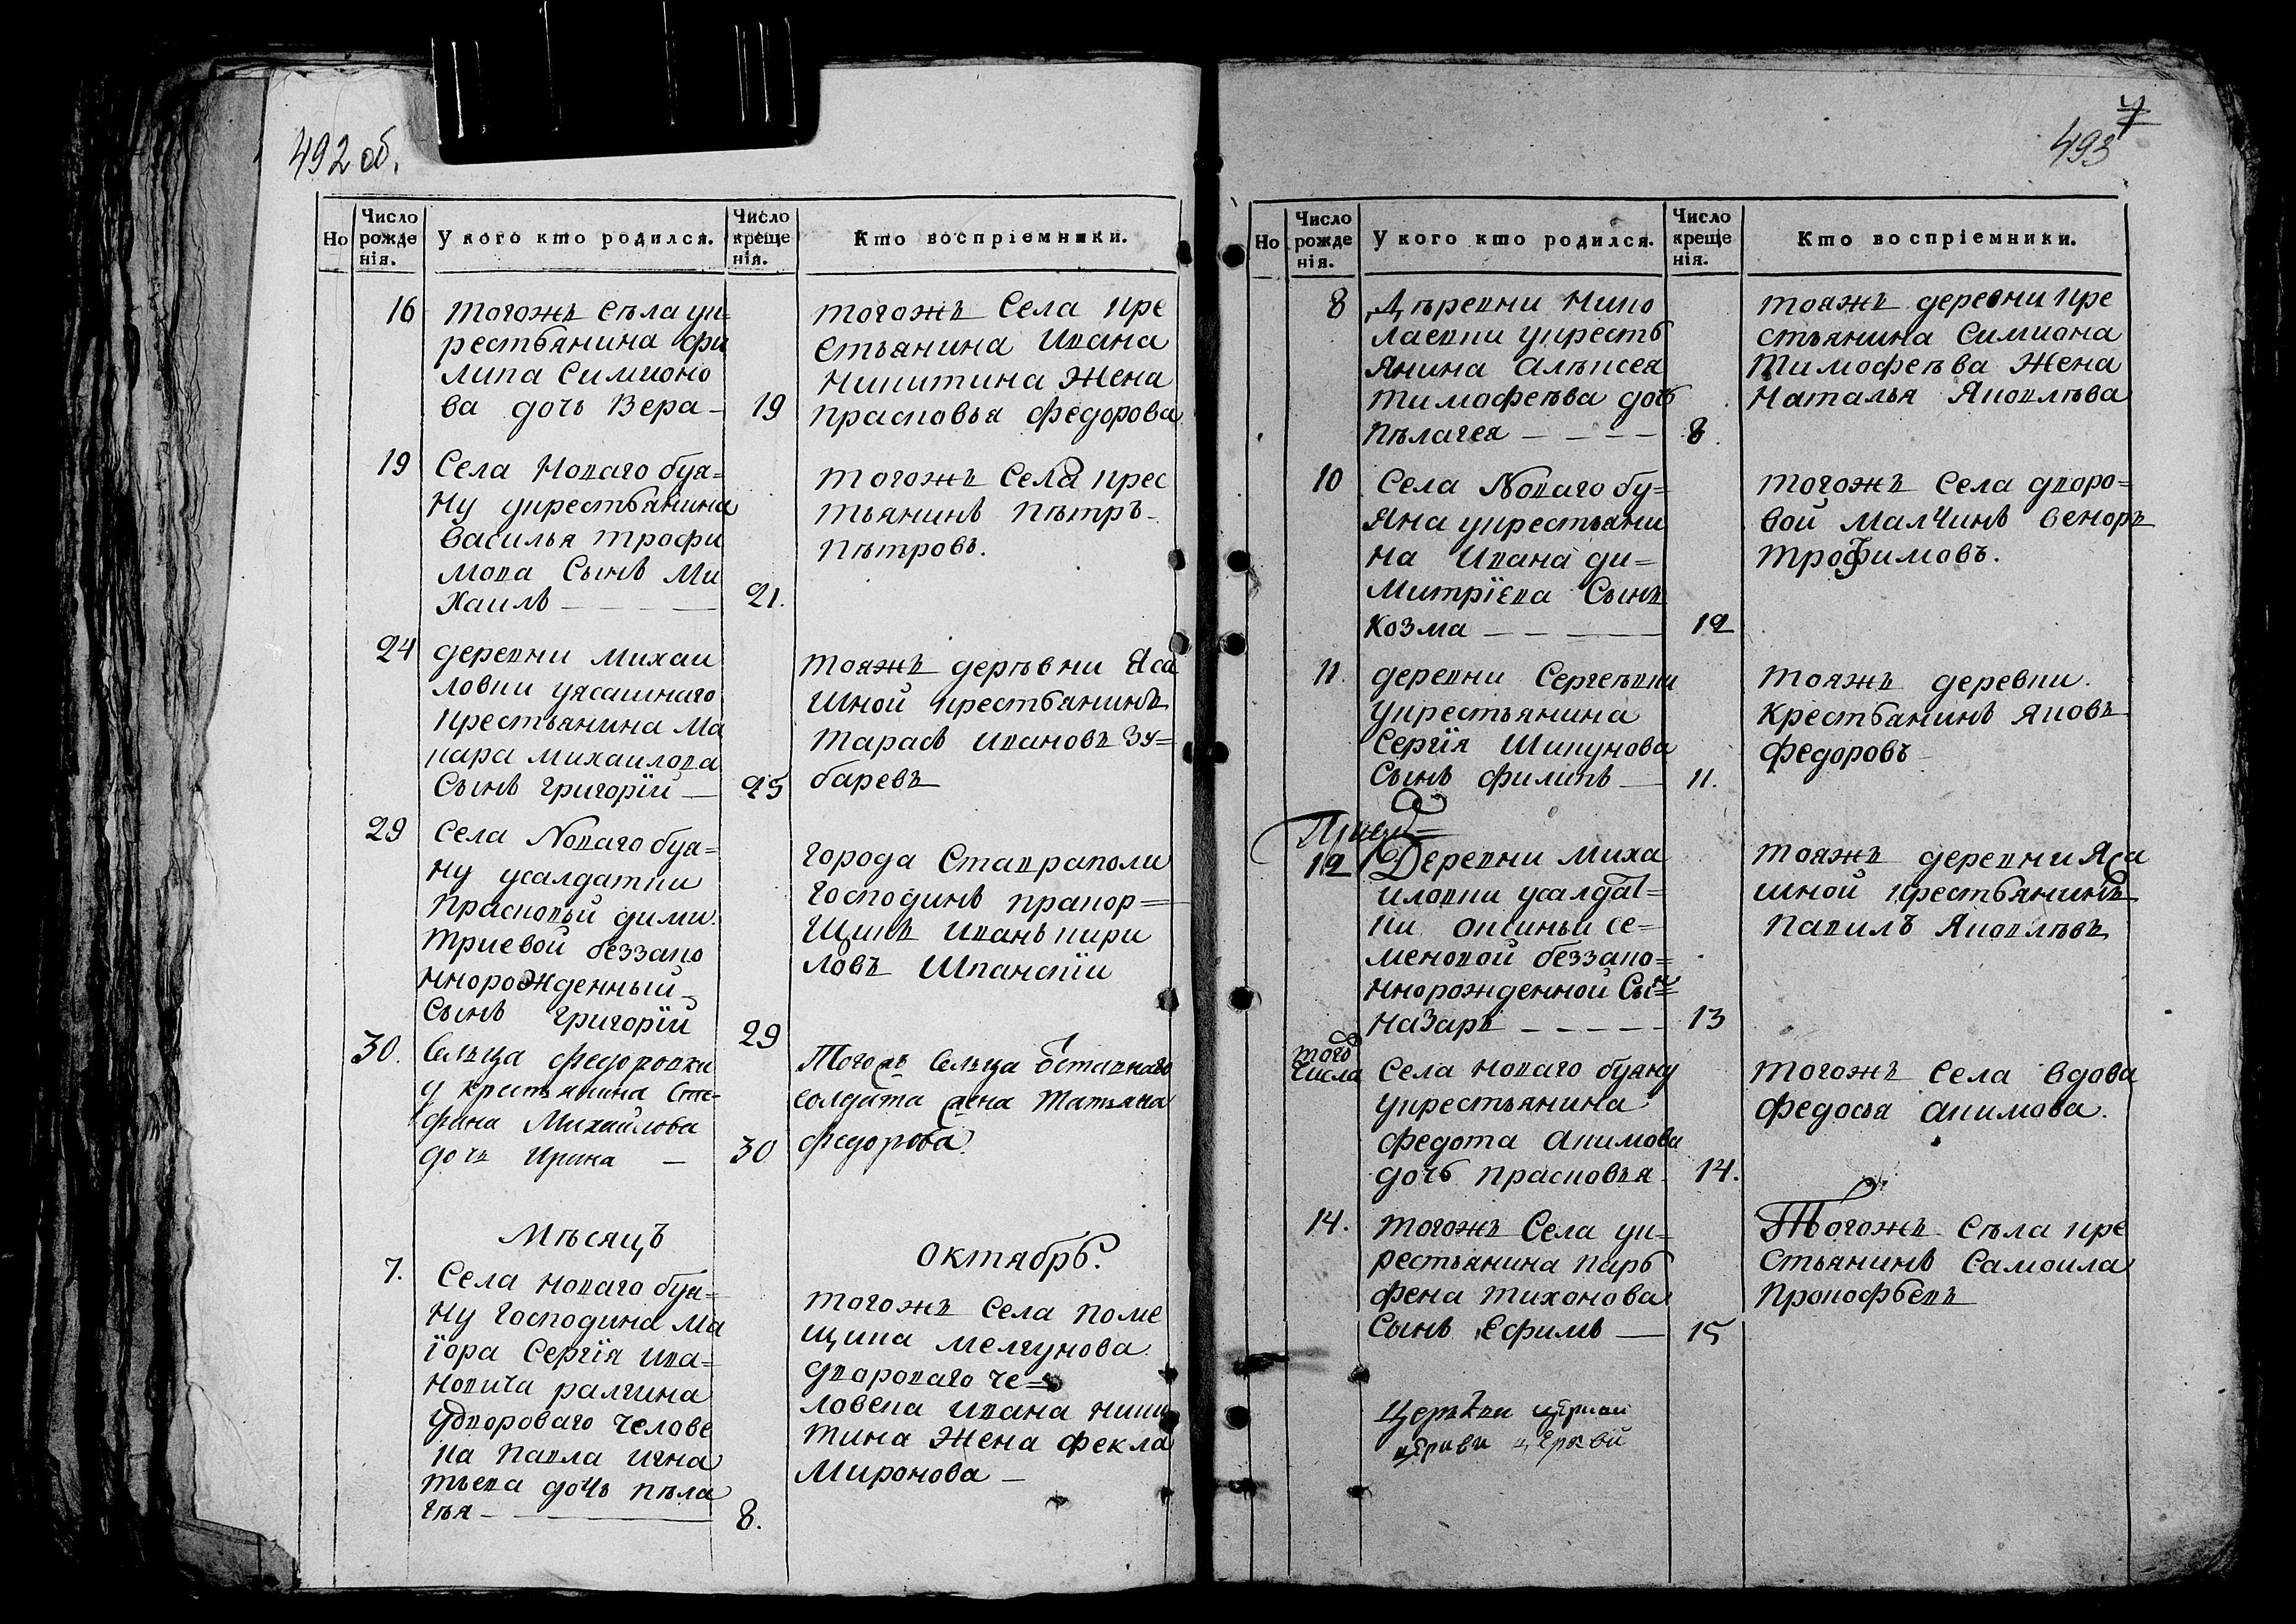 492 об.
Но
Число рожде нія.
У кого кто родился.
Число креще нія.
Кто воспріемники.
16
тогожъ Сѣла ук=
рестьянина фи
липа Симионо
ва дочь Вера –
19
тогожъ Села кре
стьянина Ивана
Никитина Жена
прасковья федорова
19
Села Новаго буя=
ну укрестьянина
василья трофи
мова Сынъ Ми
хаилъ –
21.
тогожъ Села крес
тьянинъ пѣтръ
пѣтровъ.
24
деревни михаи
ловки уясашнаго
крестьянина Ма
кара михаилова
Сынъ григорїй –
25
тояжъ дерѣвни Яса
шной крестьянинъ
тарасъ ивановъ Зу=
баревъ
29
села Новаго буя=
ну усалдатки
прасковьи дими
триевой беззако
ннорожденный
Сынъ григорїй
29
города Ставраполи
господинъ прапор=
щикъ иванъ кири
ловъ Шпанскїи
30.
Сельца федоровки
у крестьянина Сте-
фана Михайлова
дочь Ирина –
30
Тогожъ Сельца Отставнаго
солдата жена Татьяна
федорова.
Мѣсяцъ
октябрь.
7.
Села новаго буя=
ну господина ма
їора Сергїя ива=
новича ралгина
удвороваго челове
ка павла игна
тьева дочь пѣла
гѣя –
8.
тогожъ Села поме
щика мелгунова
двороваго че=
ловека ивана ники
тина Жена фекла
Миронова –
493
Но
Число рожде нія.
У кого кто родился.
Число креще нія.
Кто воспріемники.
8
Дѣревни Нико
лаевки укресть
янина Алѣксея
тимофѣева дочь
пѣлагея – – – –
8.
тояжъ деревни кре
стьянина Симиона
тимофѣева Жена
Наталья Яковлѣва
10
Села Новаго бу=
яна укрестьяни
на ивана ди=
митрїева Сынъ
козма – – – –
12
тогожъ Села дворо=
вой малчикъ
трофимовъ.
11.
деревни Сергѣевки
укрестьянина
Сергїя Шипунова
Сынъ филипъ –
11.
тояжъ деревни.
крестьянинъ яковъ
федоровъ
12
Деревни миха
иловки усалдат=
ки оксиньи се=
меновой беззако=
ннорожденной Сынъ
назаръ – – – – –
13
тояжъ деревни Яса
шной крестьянинъ
павилъ Яковлѣвъ
того
числа
Села новаго буяну
укрестьянина
федота акимова
дочь прасковья
14.
тогожъ Села вдова
федосья акимова.
14.
тогожъ Села ук=
рестьянина пар
фена тихонова
Сынъ Ефимъ –
15
Тогожъ Сѣла кре
стьянинъ Самоила
прокофьевъ